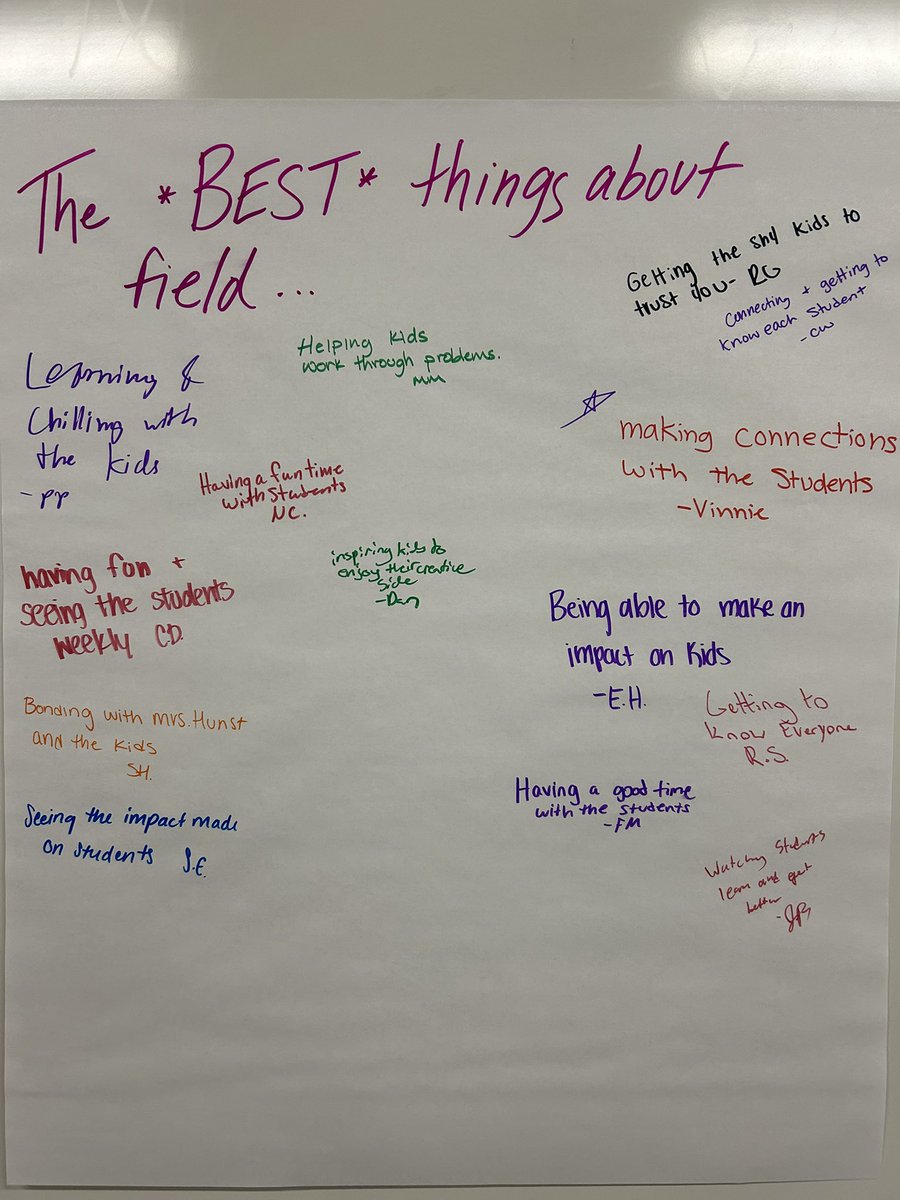 The *BEST* things about
field...
Getting the shy kids to
trust you- RG
Connecting + getting to
know each student
-CW
Helping kids
work through problems.
MM
Learning &
Chilling with
the kids
-PP
making connections
with the Students
-Vinnie
Having a fun time
with Students
NC.
inspiring kids to
enjoy their creative
side
-Dan
having fun +
seeing the students
weekly C.D.
Being able to make an
impact on Kids
-E.H.
Bonding with mrs. Hunst
and the kids
SH.
Getting to
know Everyone
R.S.
Having a good time
with the students
-FM
Seeing the impact made
on students S.E.
Watching Students
learn and get
better
-JB